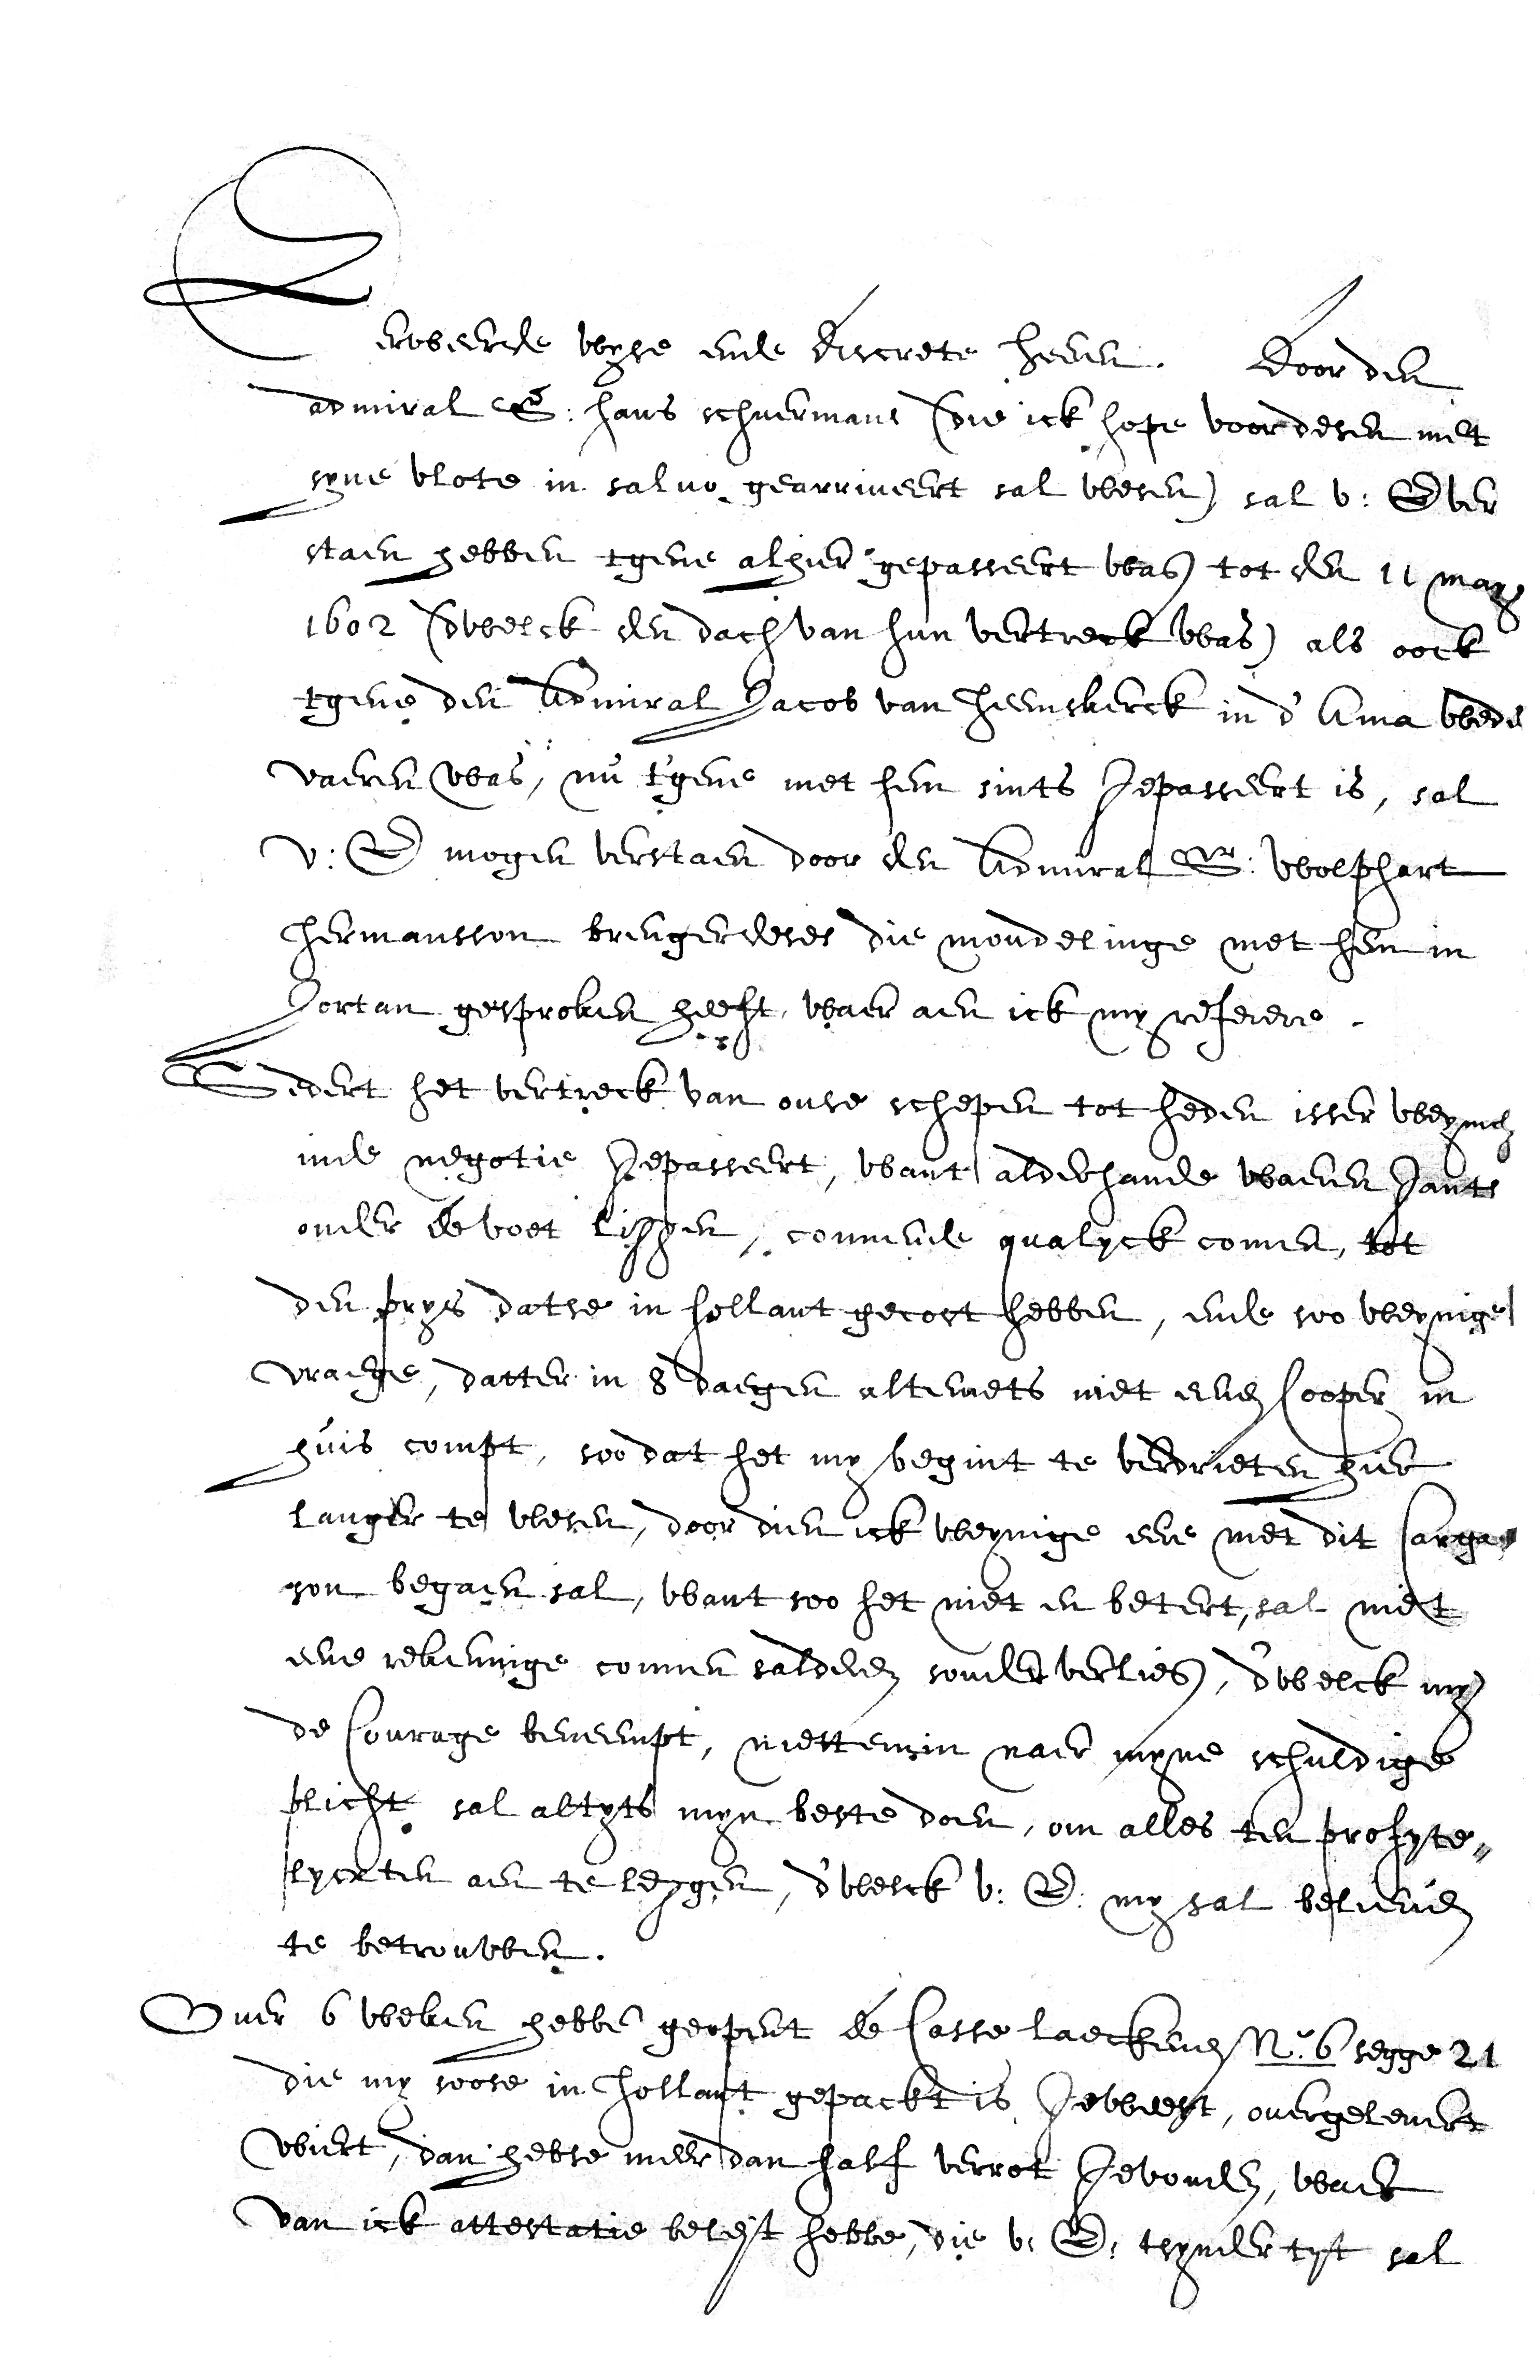 Eerweerde wyse ende discrete heeren. Door den
admiral Sr: hans schuermans (die ick hope voor desen met
syne vlote in salvo gearriveert sal wesen) sal v: E ver
staen hebben tgene alhier gepasseert was tot den 11 may
1602 (dwelck den dach van hun vertreck was) als oock
tgene den Admiral Jacob van heemskerck in d' Ama wede
vaeren was, nu t'gene met hem sints gepasseert is, sal
v: E mogen verstaen door den Admiral Sr: wolphart
hermansson brenger deses die mondelinge met hem in
Jortan gesproken heeft, waer aen ick my refereere.
Sedert het vertreck van onse schepen tot heden isser weynich
inde negotie gepasseert, want alderhande waeren gants
onder de voet liggen, connende qualyck comen, tot
den prys datse in hollant gecost hebben, ende soo weynige
vraege, datter in 8 daegen altemets niet eenen Cooper in
huis compt, soo dat het my begint te verdrieten hier
langer te wesen, door dien ick weynige eere met dit Carga
son begaen sal, want soo het niet en betert, sal niet
eene rekeninge connen salderen sonder verlies, d'welck my
de Courage beneempt, niettemin naer myne schuldige
plicht sal altyts myn beste doen, om alles ten profyte„
lycxten aen te leggen, d'welck v: E: my sal believen
te betrouwen.
Over 6 weken hebbe geopent de Casse laeckenen No: 6 segge 21
die my soose in hollant gepackt is geweest, overgelevert
wiert, dan hebse meer dan half verrot gevonden, waer
van ick attestatie beleyt hebbe, die v: E: tsynder tyt sal